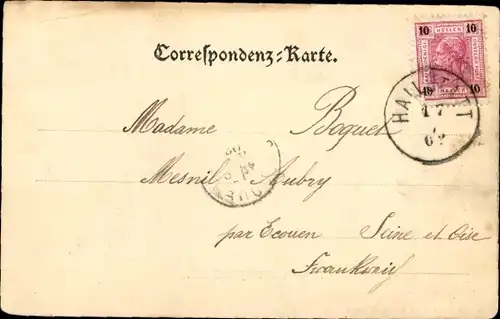 10 HELLER 10
Correspondenz-Karte.
10 10
HALLSTATT
17
7
02
Madame Boquet
Mesnil Aubry
par Ecouen Seine et Oise
Frankreich